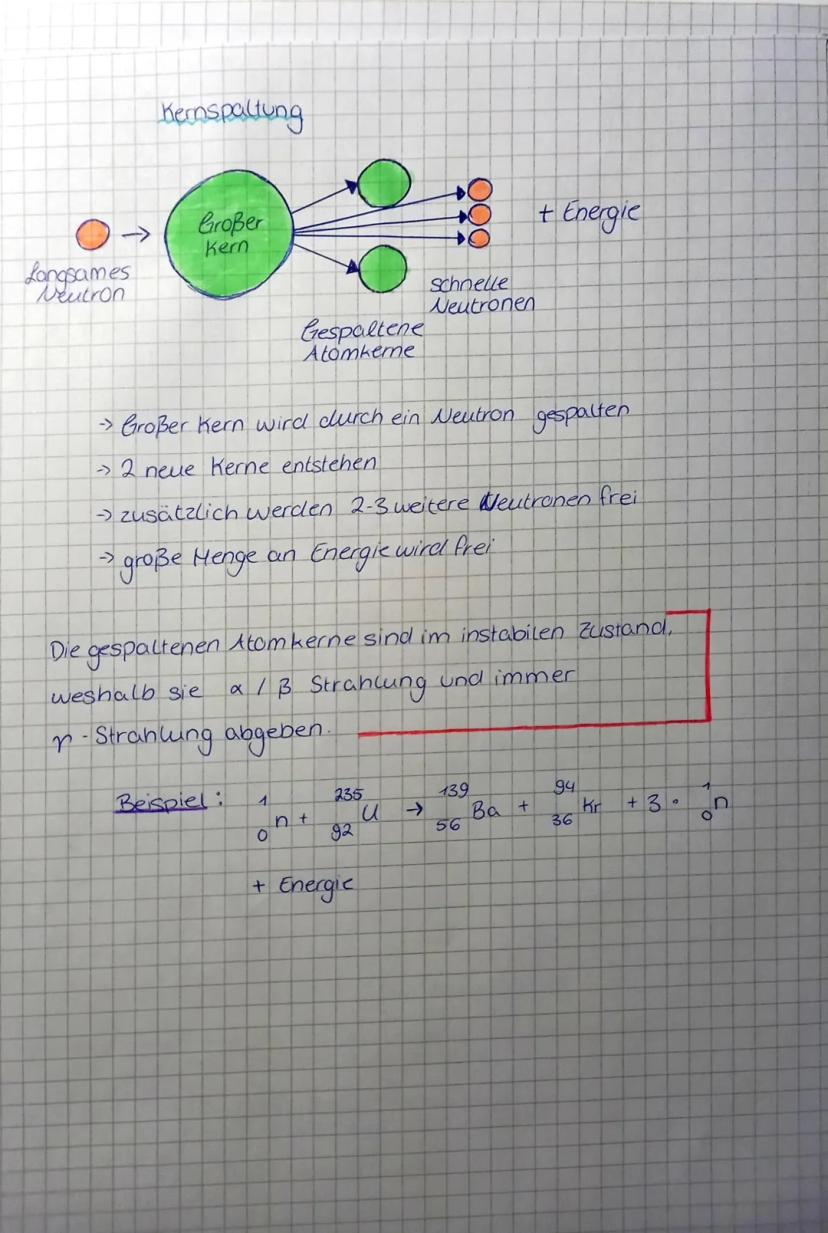 Kernspaltung
Großer
Kern
+ Energie
Langsames
Neutron
schnelle
Neutronen
Gespaltene
Atomkerne
-> Großer Kern wird durch ein Neutron gespalten
-> 2 neue Kerne entstehen
-> zusätzlich werden 2-3 weitere Neutronen frei
-> große Menge an Energie wird frei
Die gespaltenen Atomkerne sind im instabilen Zustand,
weshalb sie α / β Strahlung und immer
γ - Strahlung abgeben.
Beispiel: ¹₀n + ²³⁵₉₂U → ¹³⁹₅₆Ba + ⁹⁴₃₆Kr + 3 · ¹₀n
+ Energie